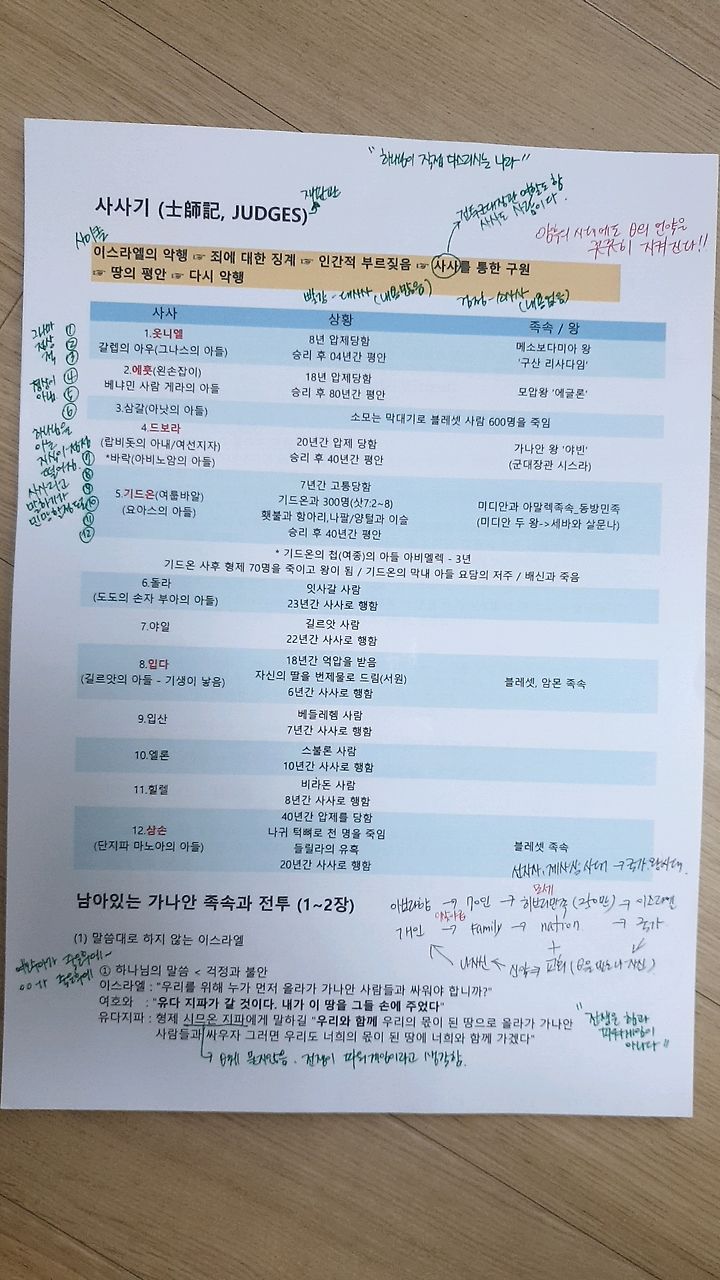 "하나님이 직접 다스리시는 나라"
재판관
사사기 (士師記, JUDGES)
사사도 사람이다.
암흑의 시대에도 의 언약을
꿋꿋히 지켜간다!!
사이클
이스라엘의 악행 ☞ 죄에 대한 징계 ☞ 인간적 부르짖음 ☞ 사사를 통한 구원
☞ 땅의 평안 ☞ 다시 악행
빨강 - 대사사 (내용많음) 검정 - 소사사 (내용없음)
사사 상황 족속 / 왕
1.옷니엘
갈렙의 아우(그나스의 아들)
8년 압제당함
승리 후 04년간 평안
메소보다미아 왕
'구산 리사다임'
2.에훗(왼손잡이)
베냐민 사람 게라의 아들
18년 압제당함
승리 후 80년간 평안
모압왕 '에글론'
3.삼갈(아낫의 아들)
소모는 막대기로 블레셋 사람 600명을 죽임
4.드보라
(랍비돗의 아내/여선지자)
*바락(아비노암의 아들)
20년간 압제 당함
승리 후 40년간 평안
가나안 왕 '야빈'
(군대장관 시스라)
5.기드온(여룹바알)
(요아스의 아들)
7년간 고통당함
기드온과 300명(삿7:2~8)
횃불과 항아리,나팔/양털과 이슬
승리 후 40년간 평안
미디안과 아말렉족속_동방민족
(미디안 두 왕->세바와 살문나)
* 기드온의 첩(여종)의 아들 아비멜렉 - 3년
기드온 사후 형제 70명을 죽이고 왕이 됨 / 기드온의 막내 아들 요담의 저주 / 배신과 죽음
6.돌라
(도도의 손자 부아의 아들)
잇사갈 사람
23년간 사사로 행함
7.야일
길르앗 사람
22년간 사사로 행함
8.입다
(길르앗의 아들 - 기생이 낳음)
18년간 억압을 받음
자신의 딸을 번제물로 드림(서원)
6년간 사사로 행함
블레셋, 암몬 족속
9.입산
베들레헴 사람
7년간 사사로 행함
10.엘론
스불론 사람
10년간 사사로 행함
11.힐렐
비라돈 사람
8년간 사사로 행함
12.삼손
(단지파 마노아의 아들)
40년간 압제를 당함
나귀 턱뼈로 천 명을 죽임
들릴라의 유혹
20년간 사사로 행함
블레셋 족속
① ② ③ ④ ⑤ ⑥ ⑦ ⑧ ⑨ ⑩ ⑪ ⑫
남아있는 가나안 족속과 전투 (1~2장)
모세
아브라함 → 70인 → 히브리민족(250만) → 이스라엘
개인 → family → nation → 국가
(1) 말씀대로 하지 않는 이스라엘
① 하나님의 말씀 < 걱정과 불안
이스라엘 : "우리를 위해 누가 먼저 올라가 가나안 사람들과 싸워야 합니까?"
여호와 : "유다 지파가 갈 것이다. 내가 이 땅을 그들 손에 주었다"
유다지파 : 형제 시므온 지파에게 말하길 "우리와 함께 우리의 몫이 된 땅으로 올라가 가나안
사람들과 싸우자 그러면 우리도 너희의 몫이 된 땅에 너희와 함께 가겠다"
"전쟁은 함과
파워게임이
아니다"
묻지않음. 전쟁이 파워게임이라고 생각함.